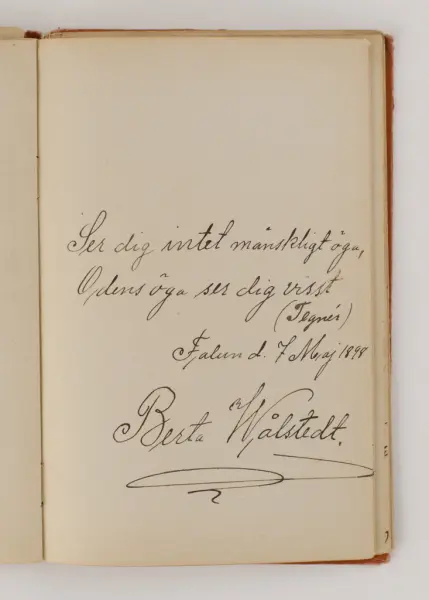 Ser dig intet mänskligt öga,
Odens öga ser dig visst
(Tegnér)
Falun d. 7 Maj 1898
Berta Wålstedt.